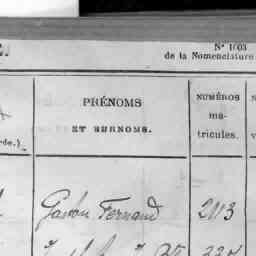 N° 1003
de la Nomenclature
PRÉNOMS
ET SURNOMS.
NUMÉROS
ma-
tricules.
rde.)
Gaston Fernand 2113